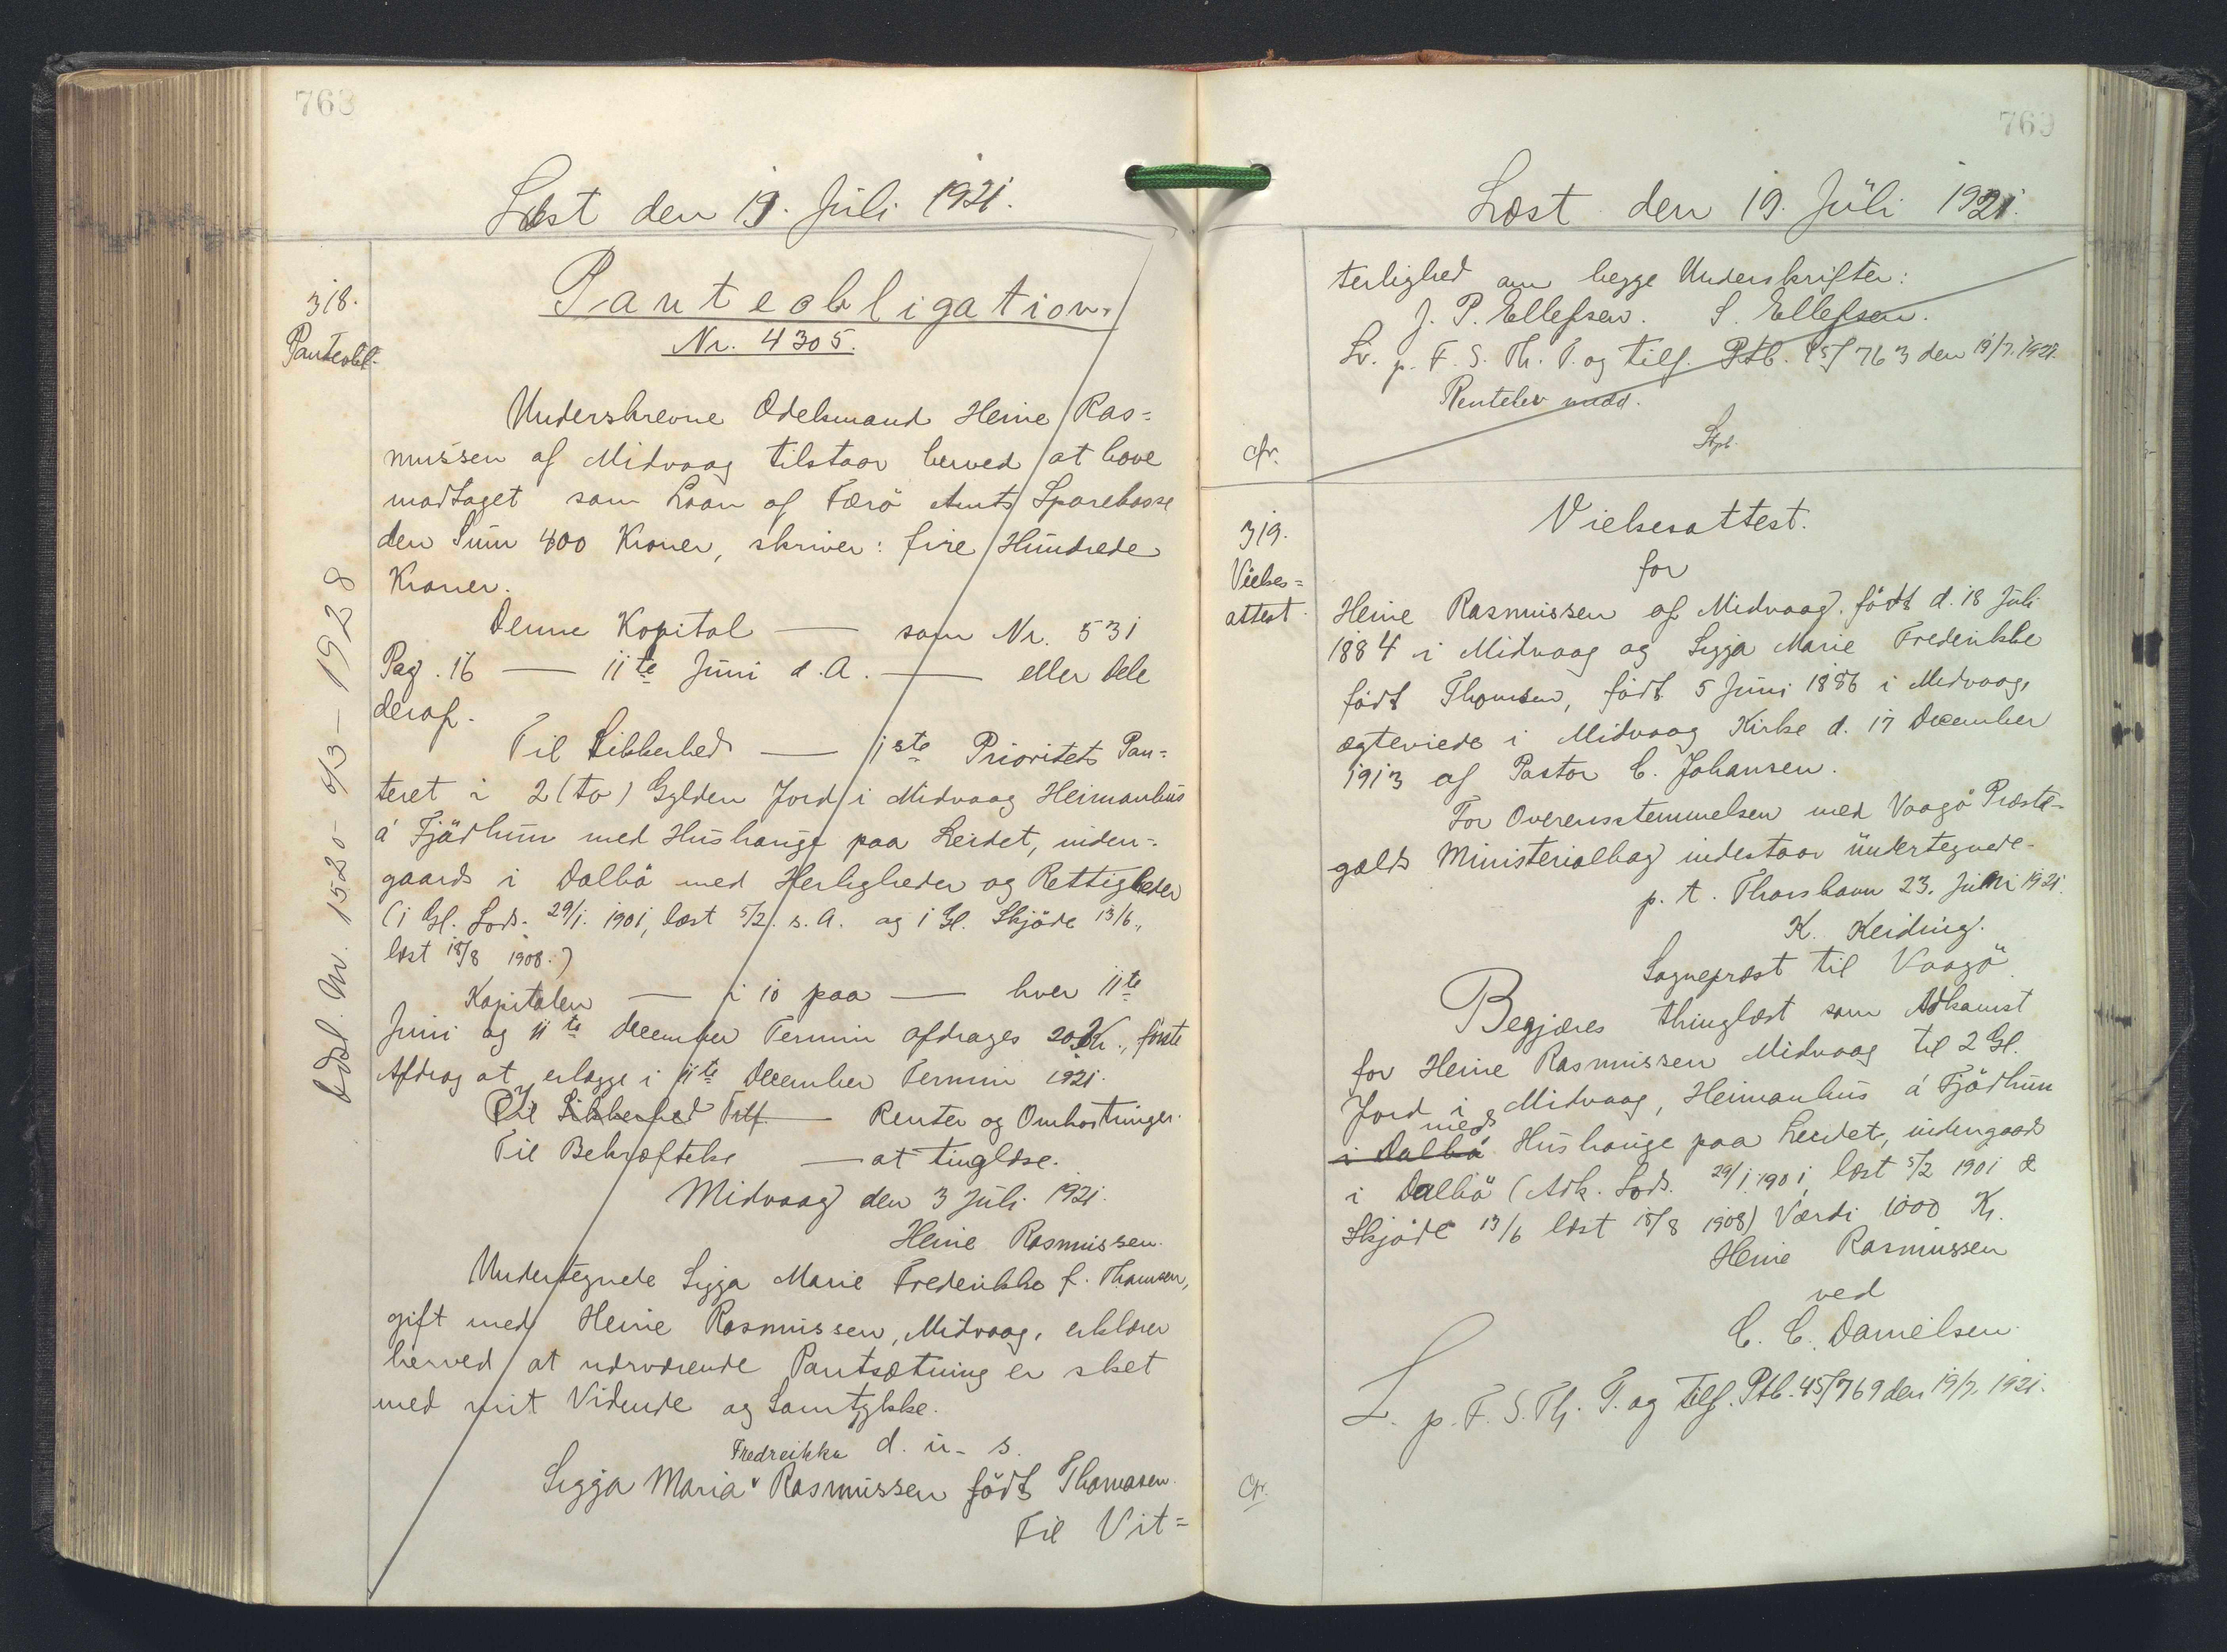 763
Læst den 19. Juli 1921.
318.
Panteobl.
Panteobligation.
Nr. 4305.
Underskrevne Odelsmand Heine Ras=
mussen af Midvaag tilstaar herved at have
modtaget som Laan af Færö Amts Sparekasse
den Sum 400 Kroner, skriver: fire Hundrede
Kroner.
Denne Kapital — som Nr. 531
Pag. 16 — 11te Juni d. A. — eller Dele
deraf.
Til Sikkerhed — 1ste Prioritets Pan=
teret i 2 (to) Gylden Jord i Midvaag Heimanhus
á Fjödhum med Hushauge paa Leidet, inden=
gaards i Dalbö med Herligheder og Rettigheder
(1 Gl. Lods. 29/1. 1901, læst 5/2. s. A. og 1 Gl. Skjöde 13/6.,
læst 18/8 1908.)
Kapitalen — i 10 paa — hver 11te
Juni og 11te December Termin afdrages 20 Kr., förste
Afdrag at erlægge i 11te December Termin 1921.
Til Sikkerhed Tilf. — Renter og Omkostninger.
Til Bekræftelse — at tinglæse.
Midvaag den 3 Juli 1921.
Heine Rasmussen.
Undertegnede Sigga Marie Frederikke f. Thomsen,
gift med Heine Rasmussen, Midvaag, erklærer
herved at nærværende Pantsætning er sket
med mit Vidende og Samtykke.
d. u. s.
Fredreikka
Sigga Maria Rasmussen födt Thomasen.
Til Vit=
Udsl. Nr. 1520 - 6/3 - 1928
769
Læst den 19. Juli 1921.
terlighed om begge Underskrifter:
J. P. Ellefsen. S. Ellefsen.
Lv. p. F. S. Th. P. og tilf. Ptb. 45/763 den 19/7. 1921.
Rentelev medd.
Stpl.
cfr.
319.
Vielses=
attest.
Vielsesattest.
for
Heine Rasmussen af Midvaag, födt d. 18 Juli
1884 i Midvaag og Sigga Marie Frederikke
födt Thomsen, födt 5 Juni 1886 i Midvaag,
ægteviede i Midvaag Kirke d. 17 December
1913 af Pastor C. Johansen.
For Overensstemmelsen med Vaagö Præste-
galds Ministerialbog indestaar undertegnede.
p. t. Thorshavn 23. Juni 1921.
K. Keiding.
Sognepræst til Vaagö.
Begjæres thinglæst som Adkomst
for Heine Rasmussen Midvaag til 2 Gl.
Jord i Midvaag, Heimanhus á Fjödhum
med
i Dalbö Hushauge paa Leidet, indengaards
i Dalbö (Adk. Lods. 29/1. 1901, læst 5/2 1901 &
Skjöde 13/6 læst 18/8 1908) Værdi 1000 Kr.
Heine Rasmussen
ved
C. C. Danielsen.
L. p. F. S. Th. P. og tilf. Ptb. 45/769 den 19/7. 1921.
cfr.